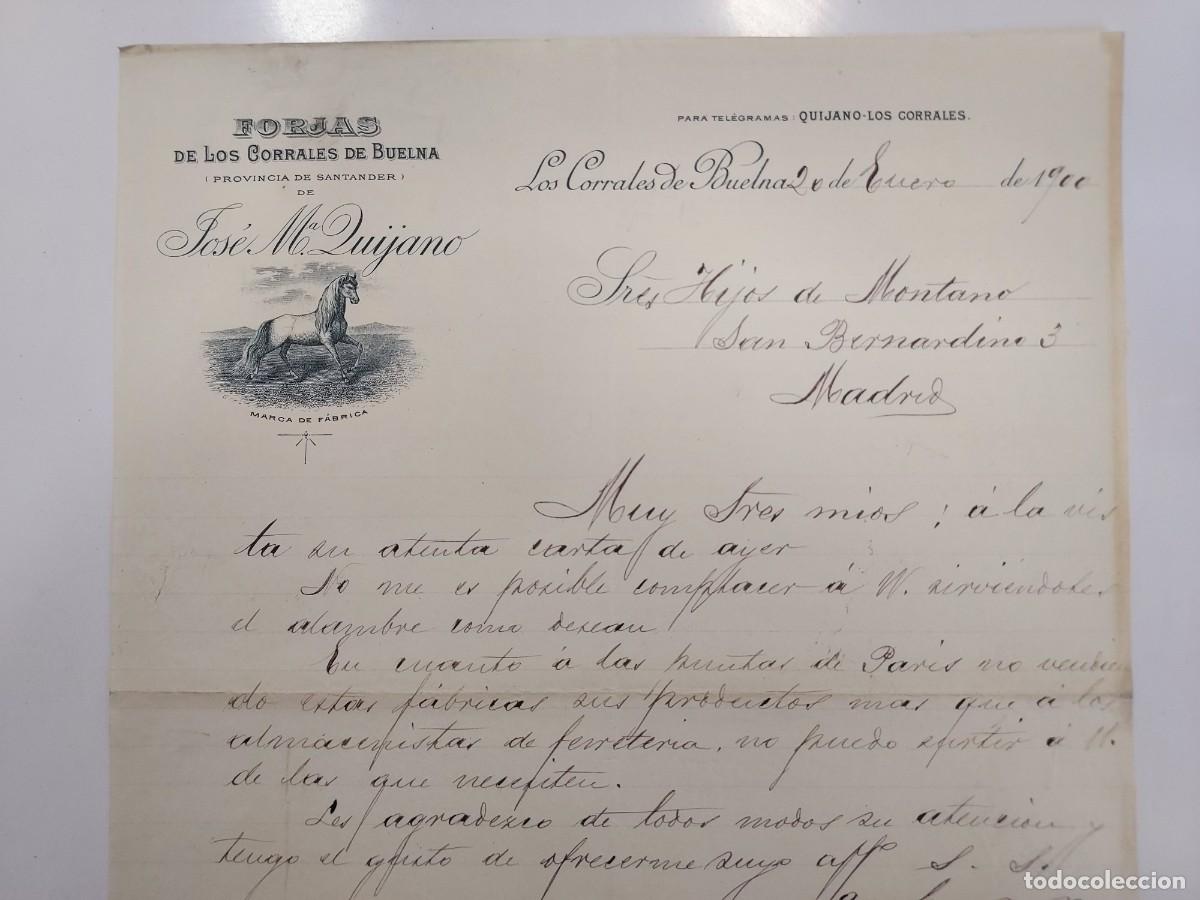 FORJAS
DE LOS CORRALES DE BUELNA
(PROVINCIA DE SANTANDER)
DE
José Mª Quijano
MARCA DE FÁBRICA
PARA TELÉGRAMAS: QUIJANO-LOS CORRALES.
Los Corrales de Buelna 20 de Enero de 1900
Sres Hijos de Montano
San Bernardino 3
Madrid
Muy Sres mios; á la vis
ta su atenta carta de ayer
No me es posible complacer á W. sirviéndoles
el alambre como desean
En cuanto á las puntas de Paris no vendien
do estas fábricas sus productos mas que á los
almacenistas de ferreteria, no puedo surtir á W.
de las que necesiten.
Les agradezco de todos modos su atencion y
tengo el gusto de ofrecerme suyo affº S. S.
todocoleccion